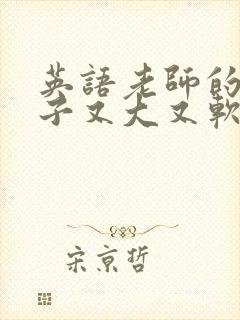 英語老師的
子又大又軟
宋京哲